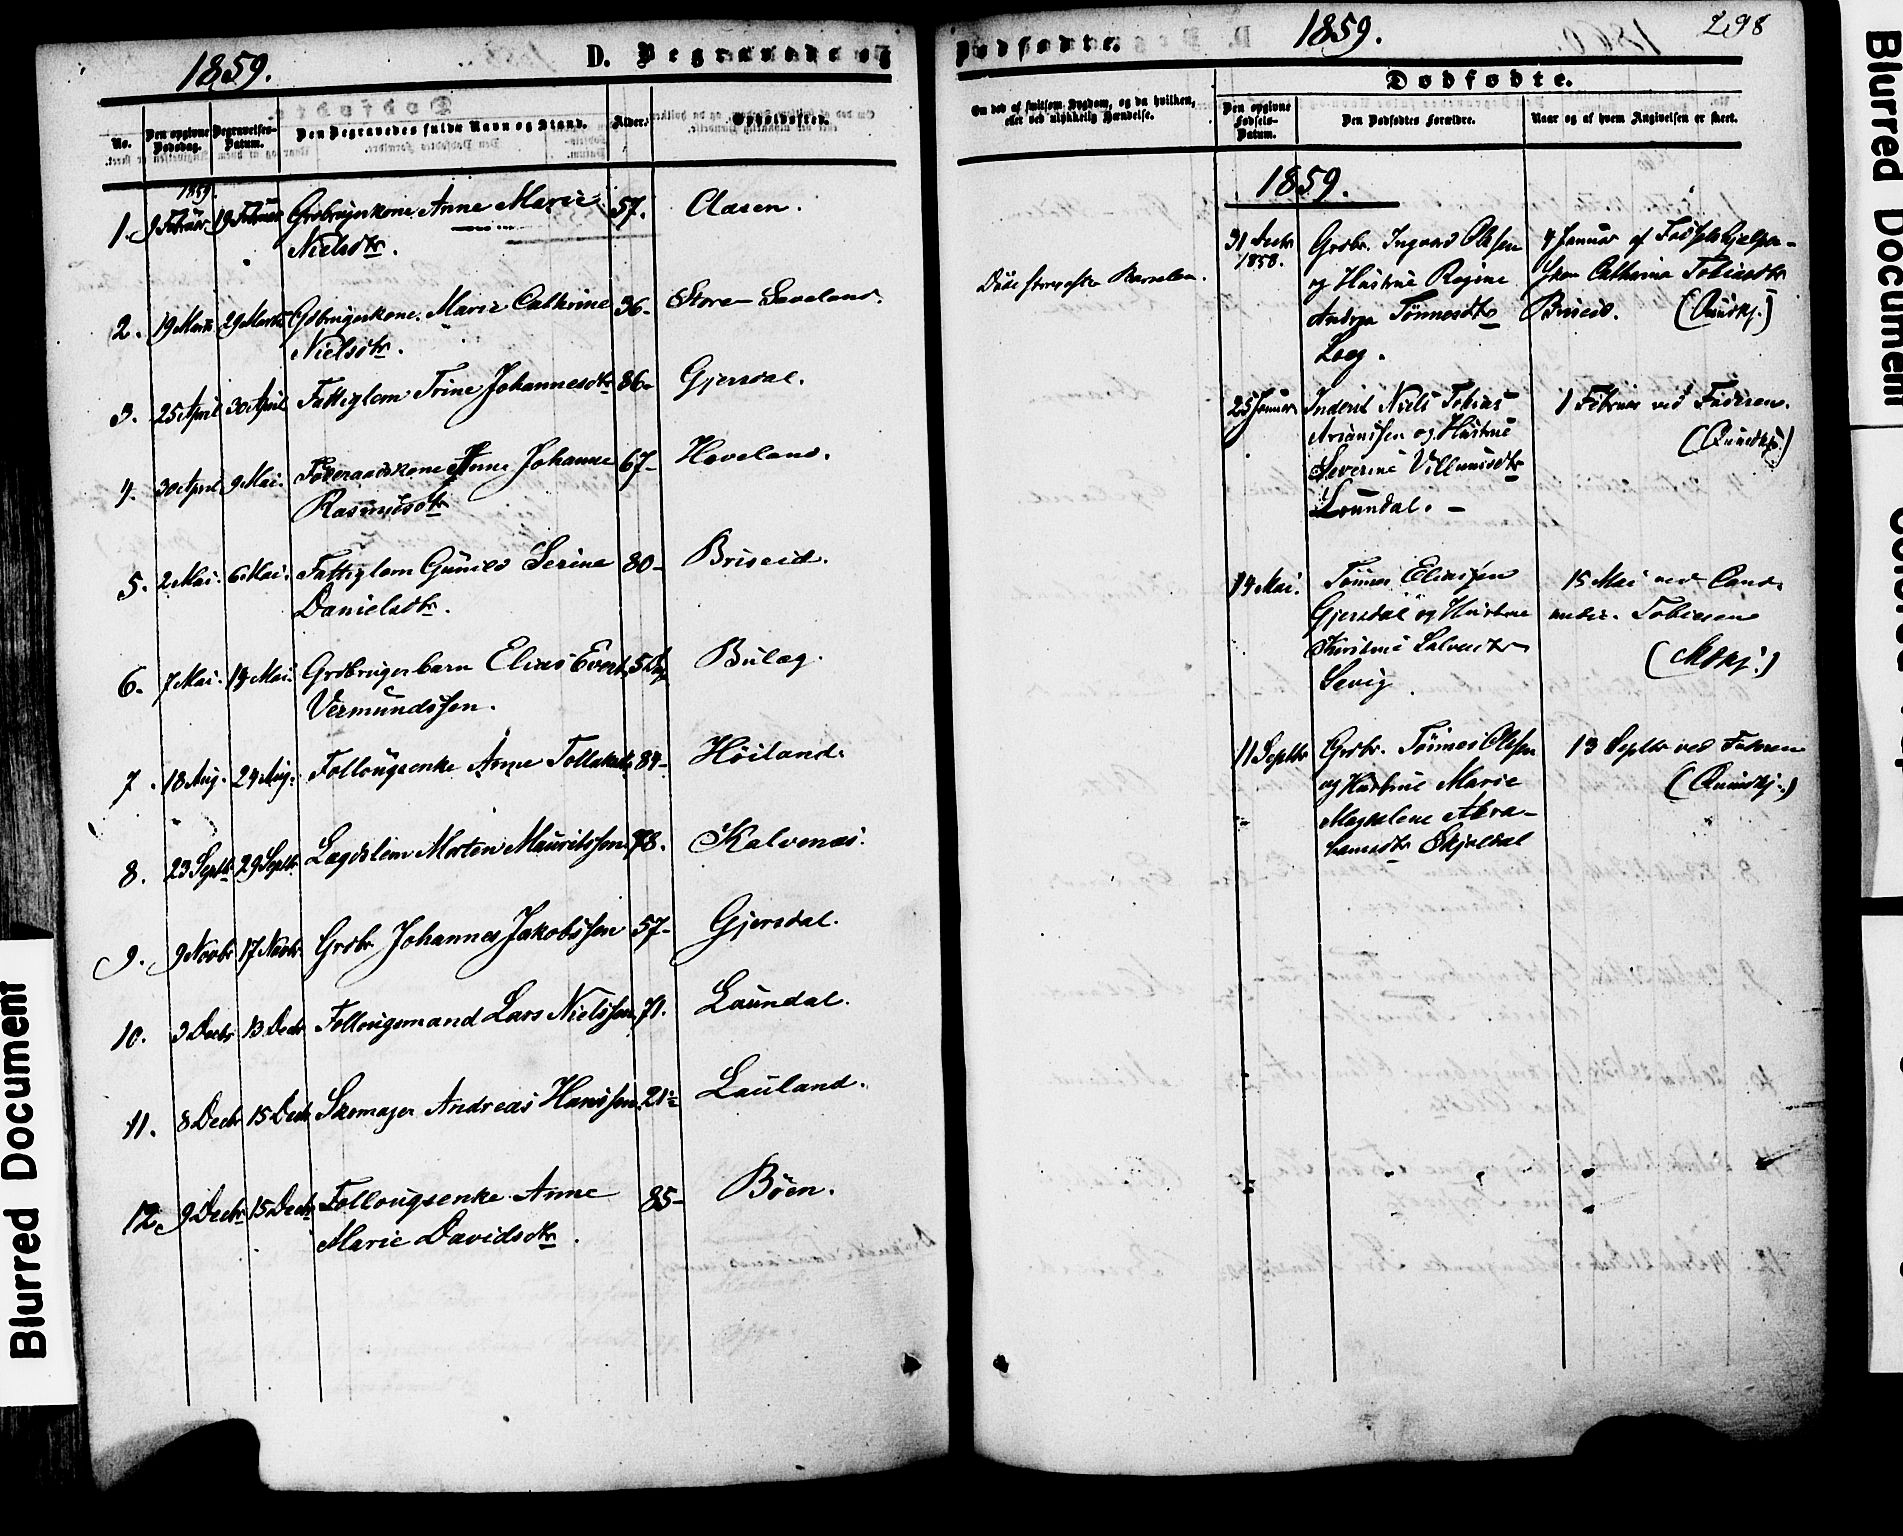 1859.
D. Begravede og
No.
Den opgivne Dødsdag.
Begravelses-Datum.
Den Begravedes fulde Navn og Stand.
Alder.
Opholdssted.
1859.
1. 9 Februar 19 Februar Grdbrugerkone Anne Marie 57. Aasen.
Nielsdtr.
2. 19 Marts 29 Marts Gdbrugerkone Marie Cathrine 36- Store-Seveland.
Nielsdtr.
3. 25 April 30 April Fattiglem Trine Johannesdtr 86- Gjersdal.
4. 30 April 9 Mai. Føderaadskone Anne Johanne 67- Hoveland.
Rasmusdtr
5. 2 Mai. 6 Mai. Fattiglem Gunild Serine 80- Briseid.
Danielsdtr.
6. 7 Mai. 14 Mai. Grdbrugerbarn Elias Evert Bulæg.
Vermundssen.
7. 18 Aug. 24 Aug. Follougsenke Anne Tollaksdtr 84- Høiland.
8. 23 Septbr 29 Septbr Lægdslem Morten Mauritssen 78. Kalvenæs.
9. 9 Novbr 17 Novbr Grdbr Johannes Jakobssen 57- Gjersdal.
10. 3 Decbr 13 Decbr Follougsmand Lars Nielssen 71. Laundal.
11. 8 Decbr 15 Decbr Skomager Andreas Hanssen 21- Lauland.
12 9 Decbr 15 Decbr Follougsenke Anne 85- Bøen.
Marie Davidsdtr.
Dødfødte.
1859.
298
Om død af smitsom Sygdom, og da hvilken,
eller ved ulykkelig Hændelse.
Døde strax efter Barselen.
Dødfødte.
Den opgivne Fødsels-Datum.
Den Dødfødtes Forældre.
Naar og af hvem Angivelsen er skeet.
1859.
31 Decbr Grdbr. Ingvard Olssen 4 Januar af Fødselshjelper-
1858. og Hustrue Regine sken Cathrine Tobiasdtr
Andrea Tønnesdtr Briseid. (Quindkj.)
Læg.
25 Januar Inderst Niels Tobias 1 Februar ved Faderen.
Arianssen og Hustrue (Quindkj.)
Severine Villumsdtr
Laundal. -
14 Mai. Tønnes Eliassen 15 Mai ved Cand.
Gjersdal og Hustrue Tobiesen
Salvesdtr (Mdkj.)
Sevig
11 Septbr Grdbr. Tønnes Olssen 13 Septbr ved Faderen
og Hustrue Marie (Quindkj.)
Magdalene Abra-
hamsdtr Skjeldal
Blurred Document
Blurred Document